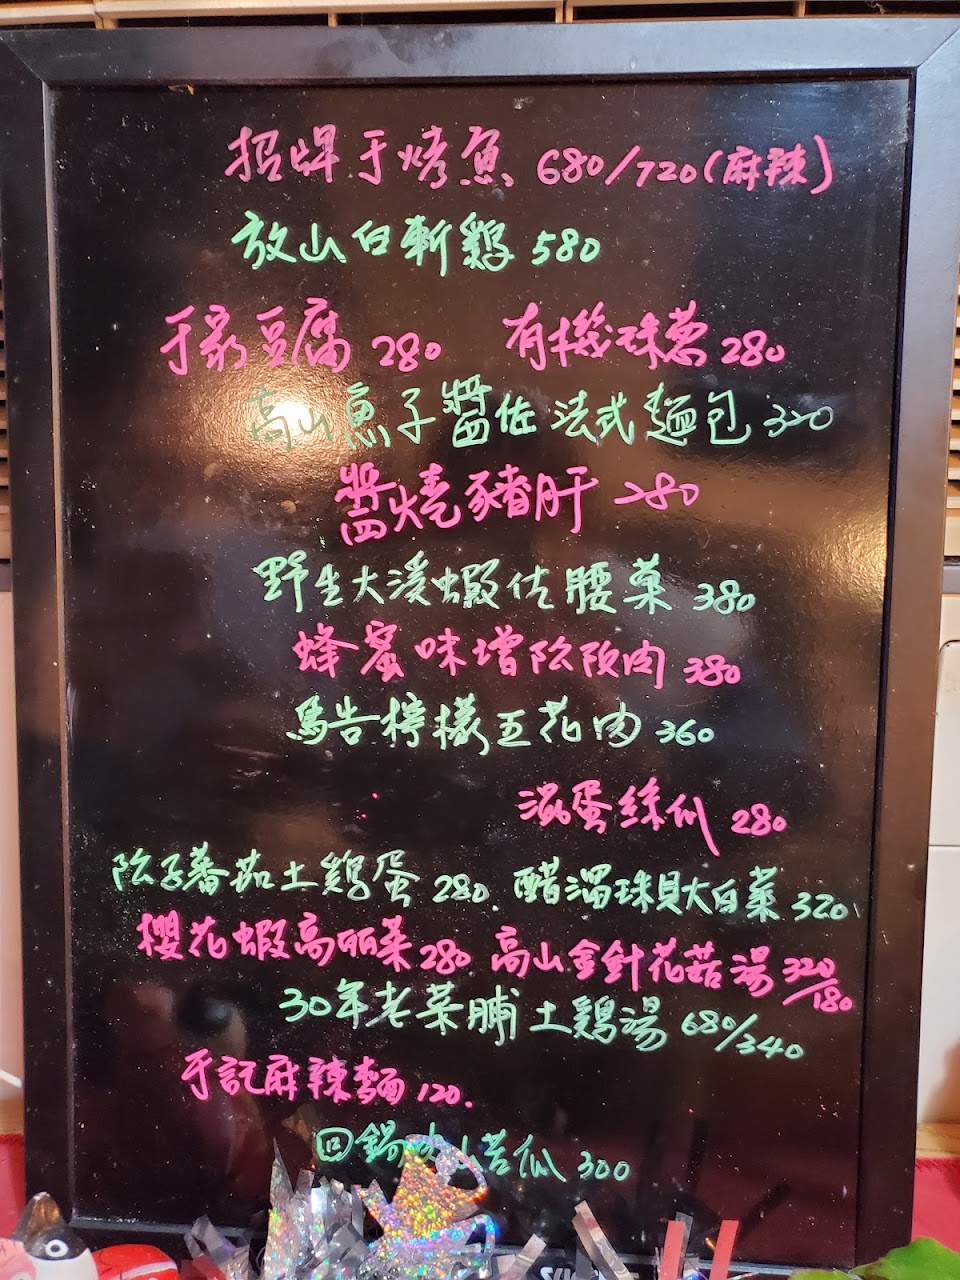 招牌于烤魚 680/720(麻辣)
放山白斬鷄 580
于家豆腐 280 有機珠蔥 280
高山魚子醬佐法式麵包 320
醬燒豬肝 280
野生大溪蝦佐腰菓 380
蜂蜜味增阾阪肉 380
馬告檸檬五花肉 360
滑蛋絲瓜 280
阾子蕃茄土鷄蛋 280. 醋溜珠貝大白菜 320
櫻花蝦高丽菜 280 高山金針花菇湯 320/180
30年老菜脯土鷄湯 680/340
于記麻辣麵 120.
回鍋 山苦瓜 300